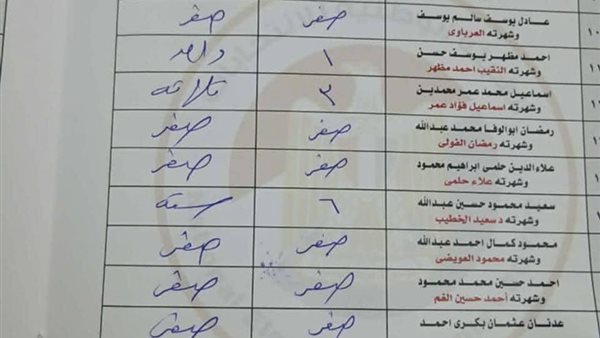 ١٠ عادل يوسف سالم يوسف صفر صفر
وشهرته العرباوى
احمد مظهر يوسف حسن ١ واحد
وشهرته النقيب احمد مظهر
اسماعيل محمد عمر محمدين ٣ ثلاثه
وشهرته اسماعيل فؤاد عمر
رمضان ابوالوفا محمد عبدالله صفر صفر
وشهرته رمضان الفولى
علاءالدين حلمى ابراهيم محمود صفر صفر
وشهرته علاء حلمى
سعيد محمود حسين عبدالله ٦ سته
وشهرته د سعيد الخطيب
محمود كمال احمد عبدالله صفر صفر
وشهرته محمود العويضى
احمد حسين محمد محمود صفر صفر
وشهرته أحمد حسين الفم
عدنان عثمان بكرى احمد صفر صفر